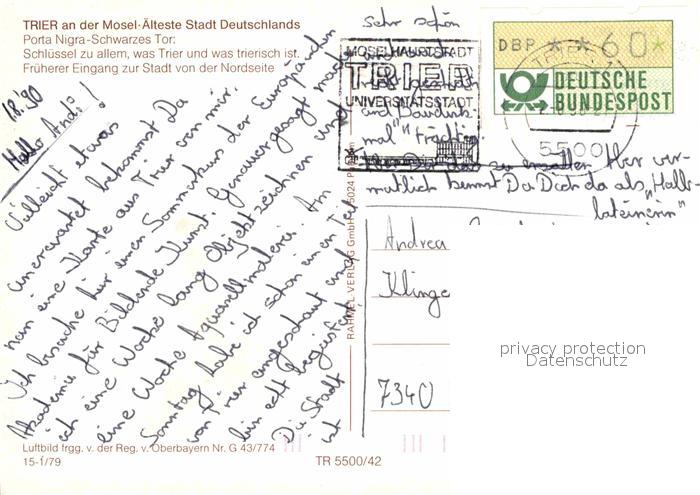 TRIER an der Mosel-Älteste Stadt Deutschlands
Porta Nigra-Schwarzes Tor:
Schlüssel zu allem, was Trier und was trierisch ist.
Früherer Eingang zur Stadt von der Nordseite
18.'90
Hallo Andi!
Vielleicht etwas
unerwartet bekommst Du
nun eine Karte aus Trier von mir.
Ich besuche hier einen Sommerkurs der Europäischen
Akademie für Bildende Kunst. Genauer gesagt mache
ich eine Woche lang Objektzeichnen und
eine Woche Aquarellmalerei. Am
Sonntag habe ich schon einen Teil
von Trier angeschaut und
bin echt begeistert.
Die Stadt
ist
sehr schön
und
und Baudenk-
mal
Dir das zu
Hier ver-
mutlich kennst Du Dich da als "Hallo-
lateinerin"
MOSELHAUPTSTADT
TRIER
UNIVERSITÄTSSTADT
DBP * * 60 *
DEUTSCHE
BUNDESPOST
TRIER
5500
Andrea
Klinge
7340
privacy protection
Datenschutz
RAHMEL-VERLAG GmbH
5024
Luftbild frgg. v. der Reg. v. Oberbayern Nr. G 43/774
15-1/79
TR 5500/42